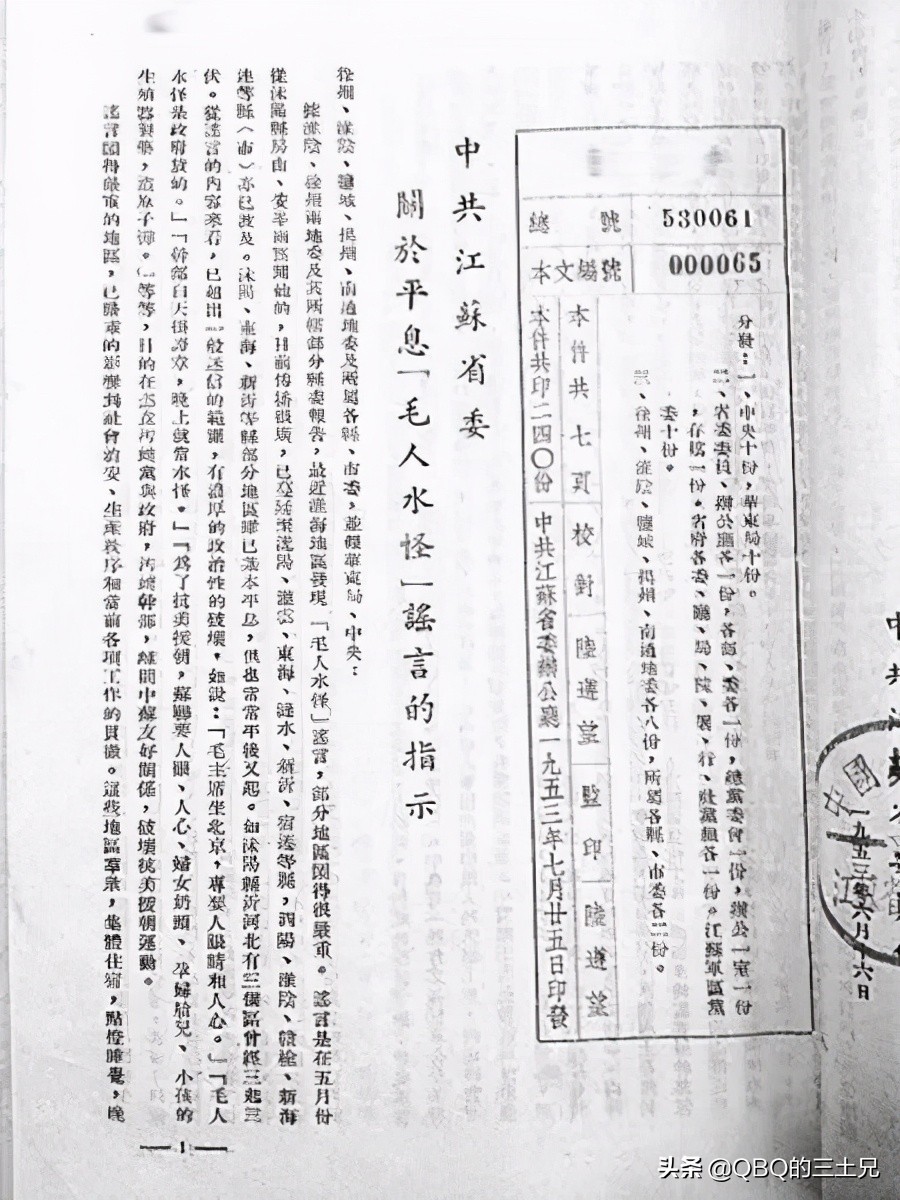 中共江
一九五三年六月十六日
分錄:一、中央十份,華東局十份。
省委委員、辦公廳各一份,各部、委各一份,
存檔一份。省府各委、廳、局、院、署、行、
委十份。
三、徐州、淮陰、鹽城、揚州、南通地委各八份,所屬各縣、市委各 份。
總號 530061
本文編號 000065
本件共七頁 校對 陸遵望 監印 陸遵望
本件共印二四〇份 中共江蘇省委辦公廳一九五三年七月廿五日印發
中共江蘇省委
關於平息「毛人水怪」謠言的指示
徐州、淮陰、鹽城、揚州、南通地委及所屬各縣、市委,並報華東局、中央:
據淮陰、徐州兩地委及其所屬部分縣委報告,最近淮海地區發現「毛人水怪」謠言,部分地區鬧得很嚴重。謠言是在五月份
從沭陽縣房山、安峯兩區開始的,目前傳播很廣,已發展至沭陽、灌雲、東海、漣水、新沂、宿遷等縣,泗陽、淮陰、 、新海
連等縣(市)亦已波及。沭陽、東海、新沂等縣部分地區雖已基本平息,但也常常平後又起。如沭陽縣沂河北有三個區曾經三起三
伏。從謠言的內容來看,已超出一般迷信的範圍,有濃厚的政治性的破壞,如說:「毛主席坐北京,專要人眼睛和人心。」「毛人
水怪是政府放的。」「幹部白天掛 ,晚上就當水怪。」「爲了抗美援朝,蘇聯要人眼、人心、婦女奶頭、孕婦胎兒、小孩的
生殖器 ,造原子彈。」等等,目的在惡意污衊黨與政府,污衊幹部,離間中蘇友好關係,破壞抗美援朝運動。
謠言鬧得嚴重的地區,已嚴重的影響到社會治安、生產秩序和當前各項工作的貫徹。這些地區羣衆,集體住宿,點燈睡覺,晚
— 1 —
头条 @QBQ的三土兄